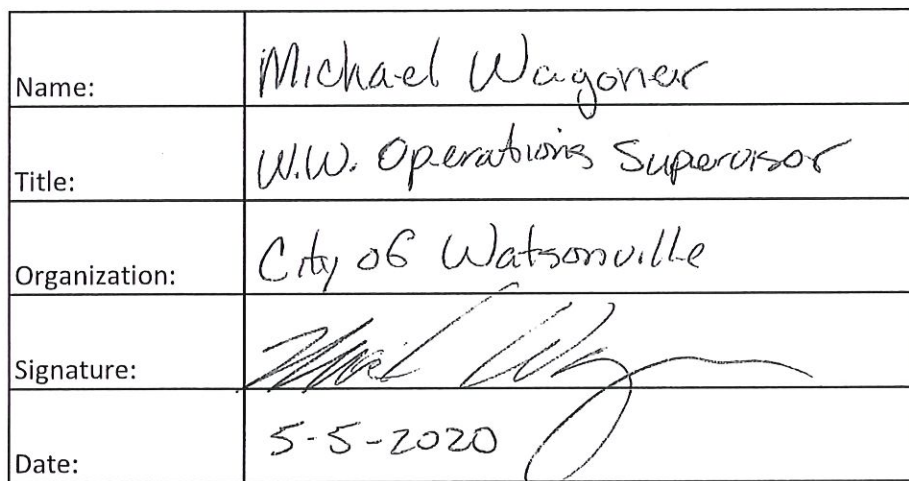 Name: Michael Wagoner
Title: W.W. Operations Supervisor
Organization: City of Watsonville
Signature:
Date: 5-5-2020